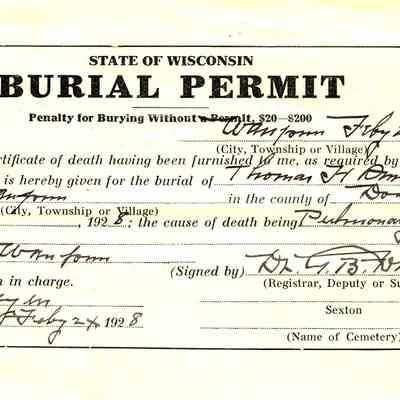 STATE OF WISCONSIN
BURIAL PERMIT
Penalty for Burying Without a Permit, $20—$200
Waupun Feby 2
(City, Township or Village)
ertificate of death having been furnished to me, as required by
is hereby given for the burial of Thomas H
in the county of Do
(City, Township or Village)
, 1928; the cause of death being Pulmonary
Waupun
n in charge.
(Signed by) Dr. G. B.
(Registrar, Deputy or Su
Sexton
Feby 24 1928
(Name of Cemetery)